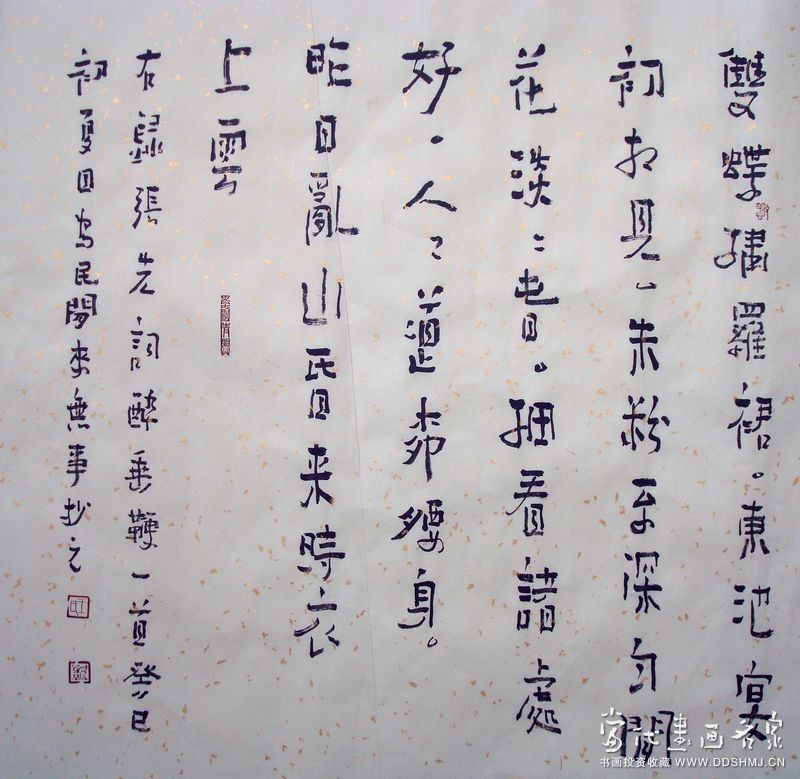 雙蝶繡羅裙。東池宴
初相見。朱粉不深勻閒
花淡〻春。細看諸處
好。人〻道柳腰身。
昨日亂山昏来時衣
上雲
右録張先詞醉垂鞭一首癸巳
初夏日民閒來無事抄之
当代书画名家
书画投资收藏 WWW.DDSHMJ.CN